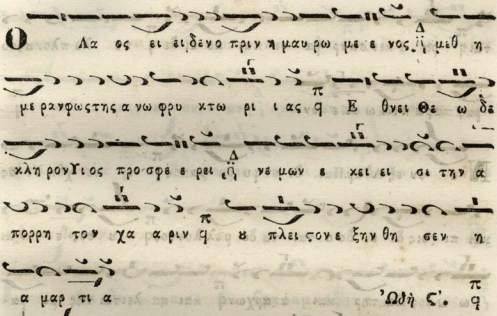 Ο Λα ος ει ει δενο πριν η μαυρω με ε νος Δ μεθ η
με ρανφωςτης α νω φρυ κτω ρι ι ας π q Ε θνει Θε ω δε
κλη ρονΥι ος προ σφε ε ρει Δ νε μων ε κει ει σε την α
πορρη τον χα α ριν π q ου πλει ςον ε ξην θη σεν η
α μαρ τι α Ὠδὴ ς΄. π q